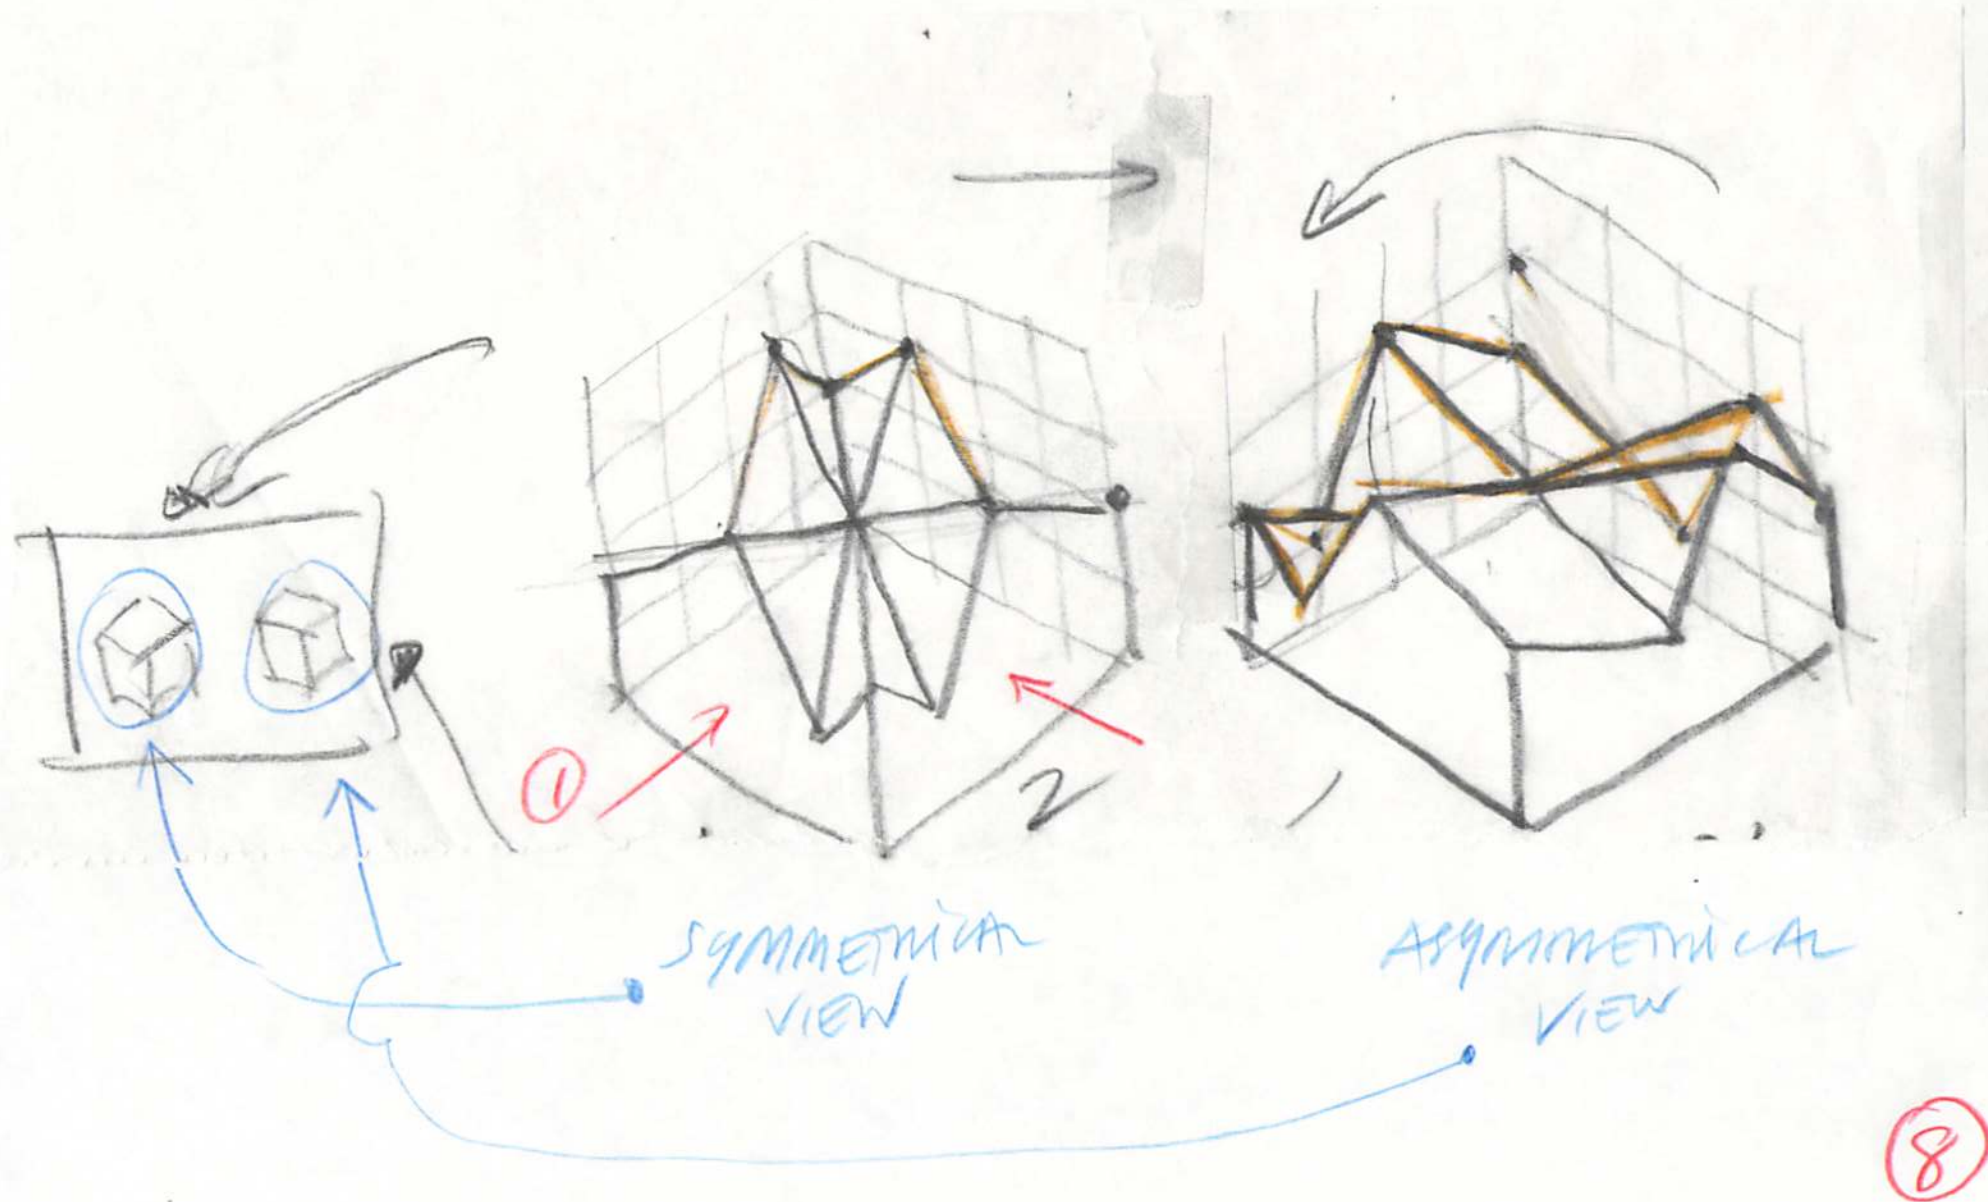 ① 2
SYMMETRICAL
VIEW
ASYMMETRICAL
VIEW
⑧